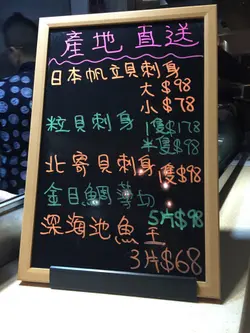 產地直送
日本帆立貝刺身
大 $98
小 $78
粒貝刺身 1隻$178
半隻$98
北寄貝刺身 隻$98
金目鯛薄切
5片$98
深海池魚王
3片$68